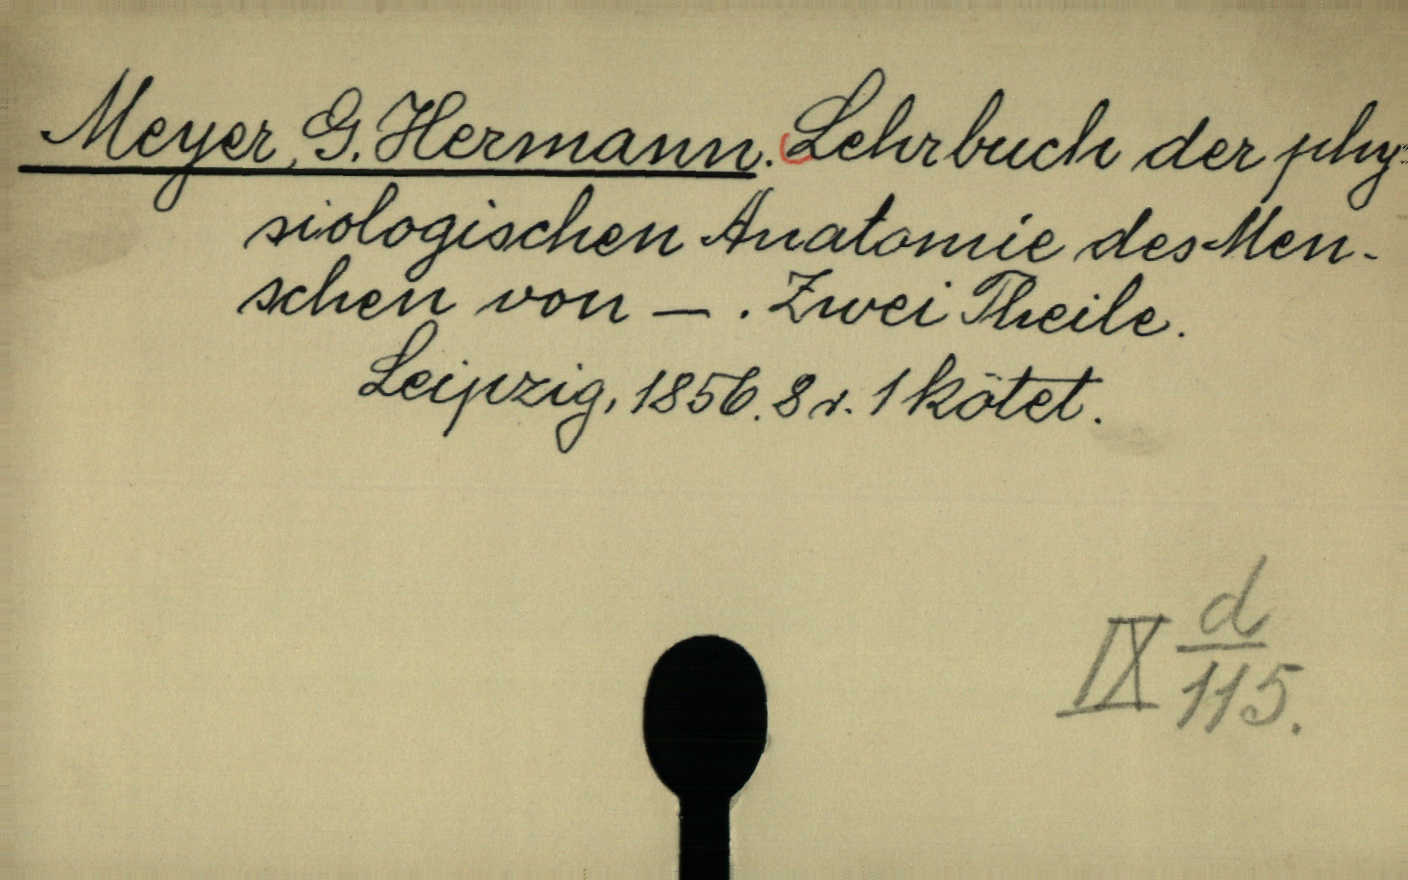 Meyer, G. Hermann. Lehrbuch der phy-
siologischen Anatomie des Men-
schen von — . Zwei Theile.
Leipzig, 1856. 8 r. 1 kötet.
IX d/115.